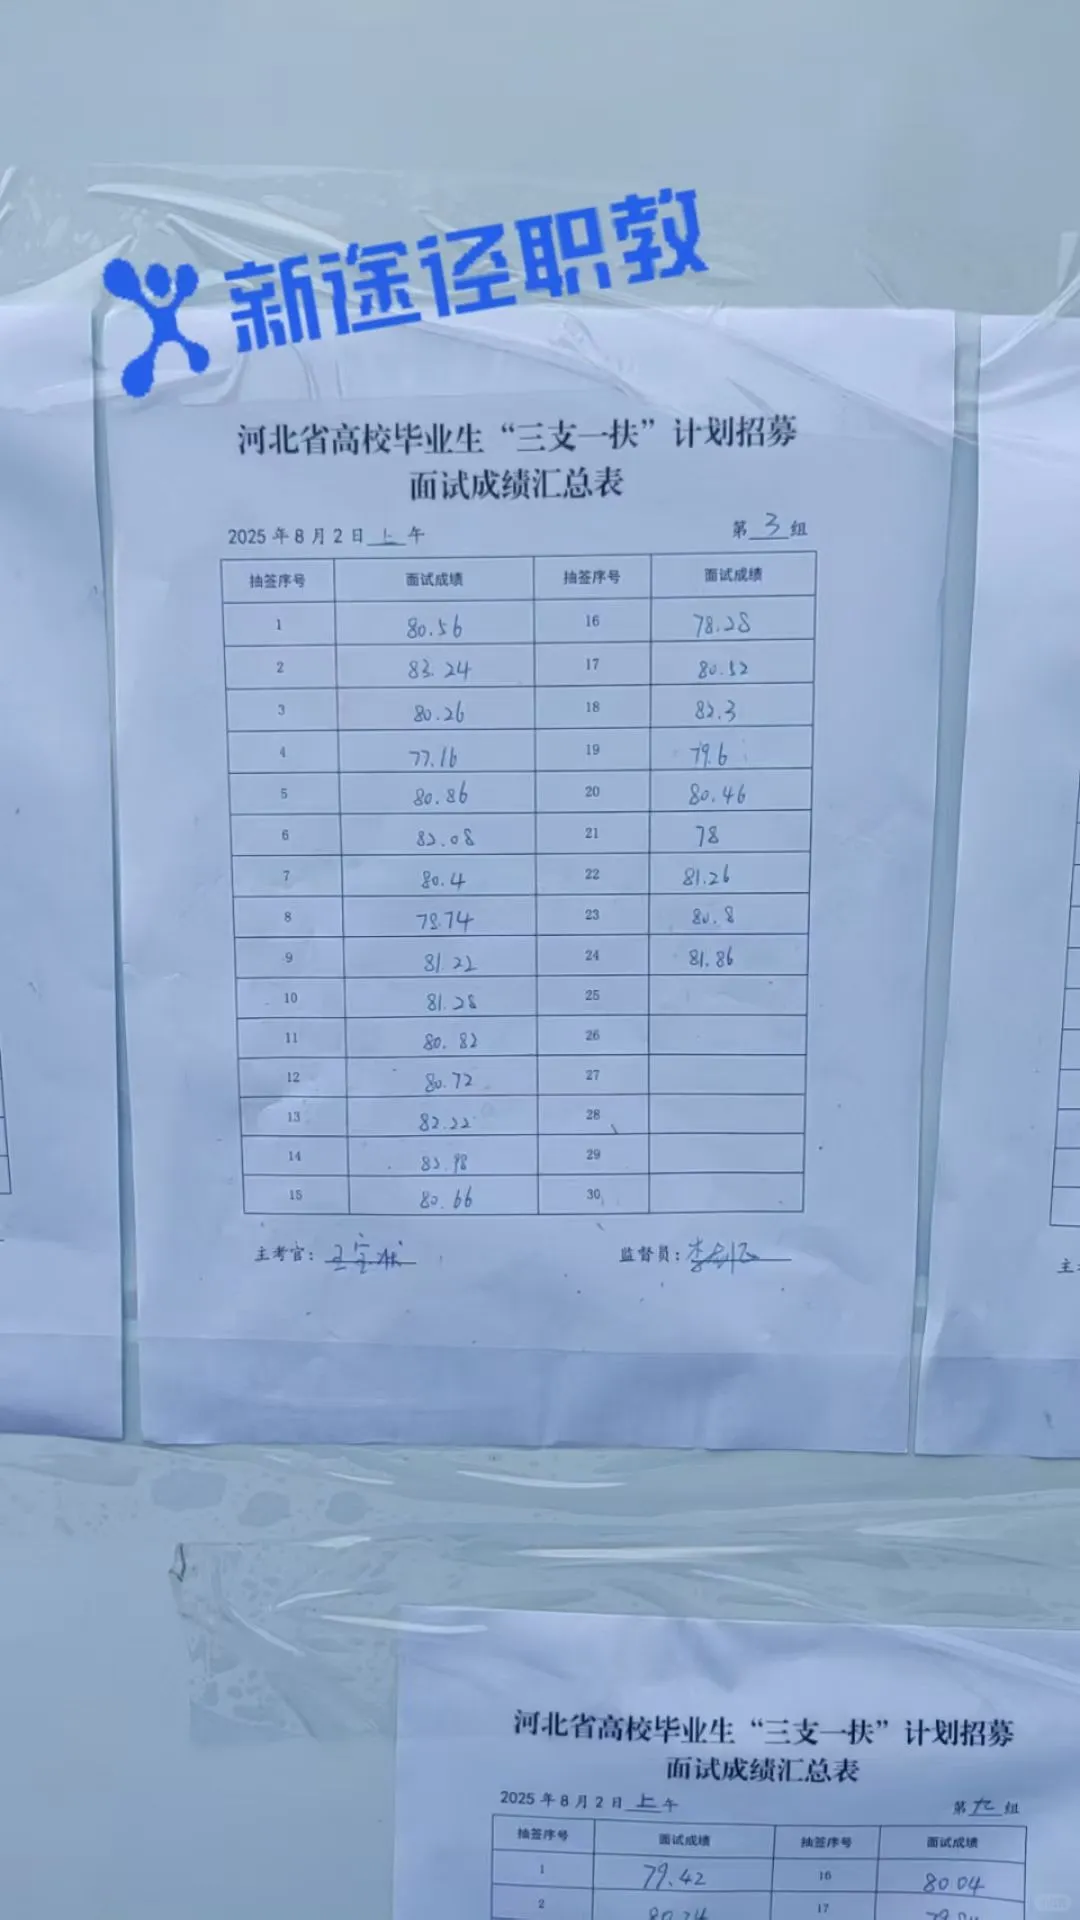 新途径职教
河北省高校毕业生“三支一扶”计划招募
面试成绩汇总表
2025年8月2日上午 第3组
抽签序号 面试成绩 抽签序号 面试成绩
1 80.56 16 78.28
2 83.24 17 80.52
3 80.26 18 82.3
4 77.16 19 79.6
5 80.86 20 80.46
6 82.08 21 78
7 80.4 22 81.26
8 78.74 23 80.8
9 81.22 24 81.86
10 81.28 25
11 80.82 26
12 80.72 27
13 82.22 28
14 29
15 80.66 30
主考官： 监督员：
主
河北省高校毕业生“三支一扶”计划招募
面试成绩汇总表
2025年8月2日上午 第九组
抽签序号 面试成绩 抽签序号 面试成绩
1 79.42 16 80.04
2 17